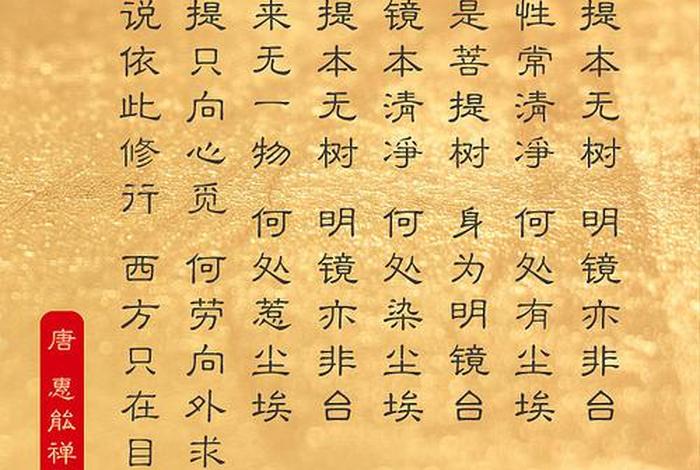 提本无树 明镜亦非台
性常清净 何处有尘埃
是菩提树 身为明镜台
镜本清净 何处染尘埃
提本无树 明镜亦非台
来无一物 何处惹尘埃
提只向心觅 何劳向外求
说依此修行 西方只在目
唐 惠能禅